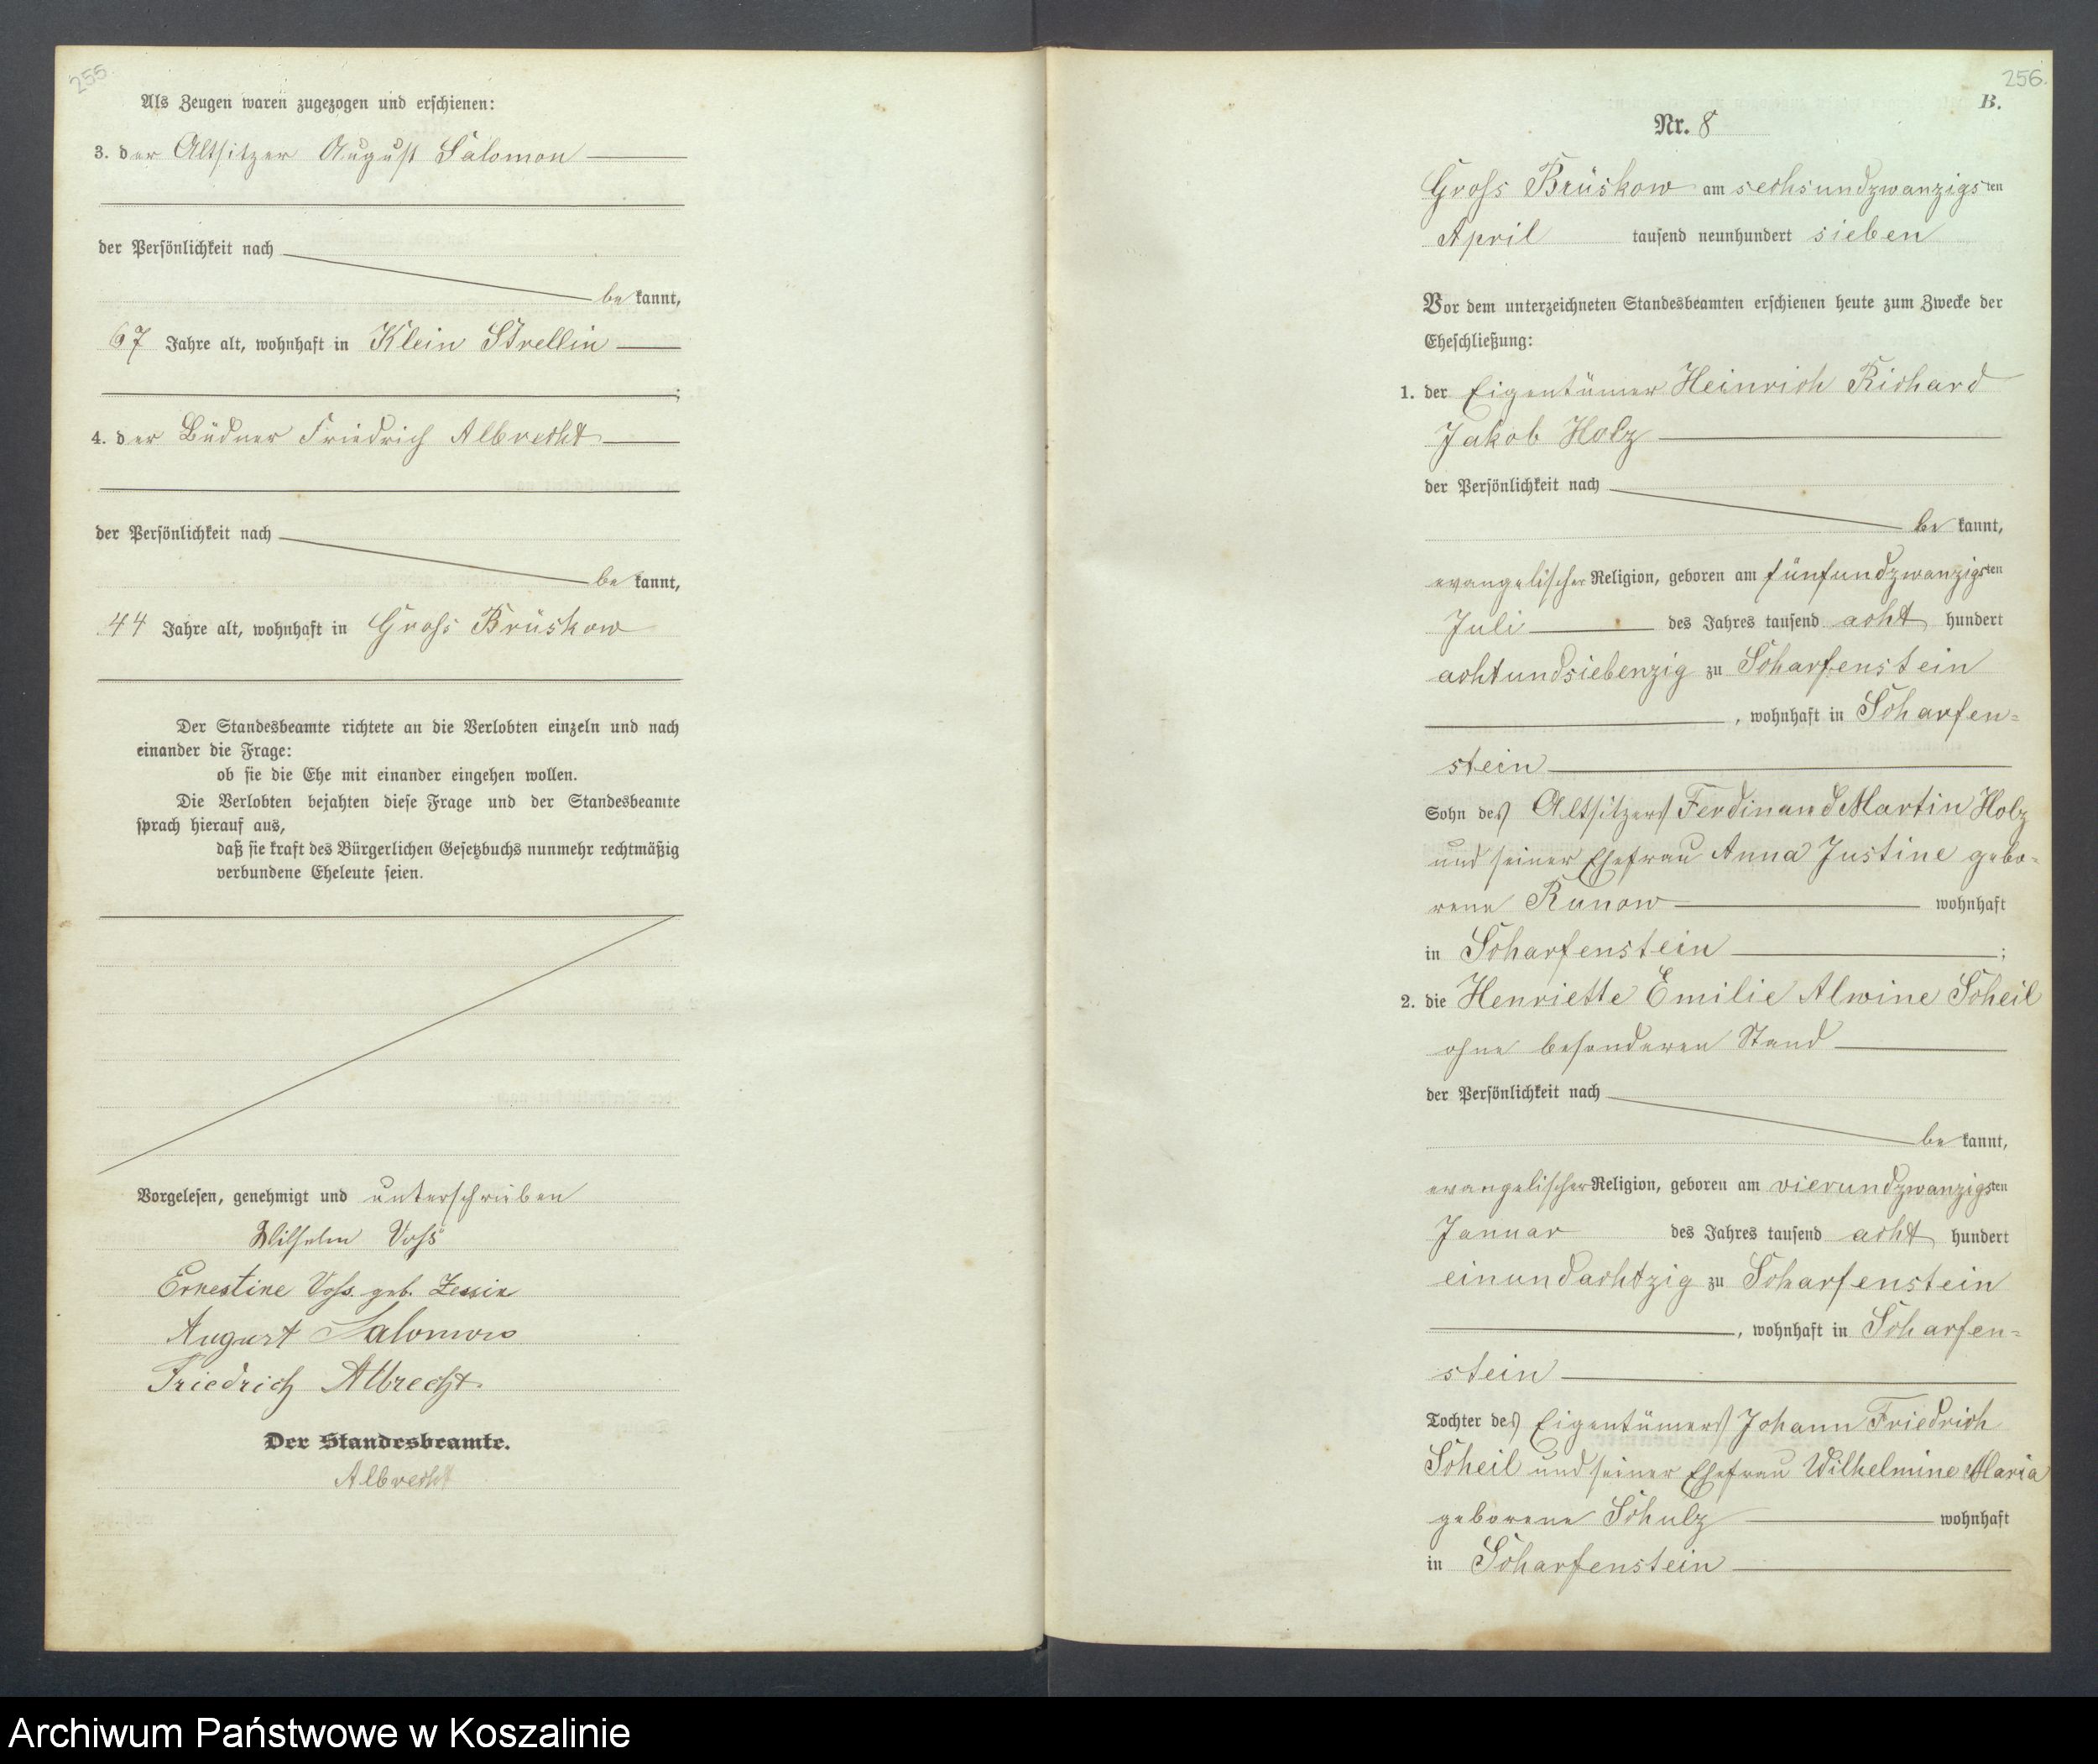 255.
Als Zeugen waren zugezogen und erschienen:
3. der Altsitzer August Salomon
der Persönlichkeit nach
be kannt,
67 Jahre alt, wohnhaft in Klein Strellin
;
4. der Büdner Friedrich Albrecht
der Persönlichkeit nach
be kannt,
44 Jahre alt, wohnhaft in Gross Brüskow
Der Standesbeamte richtete an die Verlobten einzeln und nach
einander die Frage:
ob sie die Ehe mit einander eingehen wollen.
Die Verlobten bejahten diese Frage und der Standesbeamte
sprach hierauf aus,
daß sie kraft des Bürgerlichen Gesetzbuchs nunmehr rechtmäßig
verbundene Eheleute seien.
Vorgelesen, genehmigt und unterschrieben
Wilhelm Voß
Ernestine Voß. geb. Zessin
August Salomon
Friedrich Albrecht.
Der Standesbeamte.
Albrecht
256.
B.
Nr. 8
Gross Brüskow am sechsundzwanzigsten
April tausend neunhundert sieben
Vor dem unterzeichneten Standesbeamten erschienen heute zum Zwecke der
Eheschließung:
1. der Eigentümer Heinrich Richard
Jakob Holz
der Persönlichkeit nach
be kannt,
evangelischer Religion, geboren am fünfundzwanzigsten
Juli des Jahres tausend acht hundert
achtundsiebenzig zu Scharfenstein
, wohnhaft in Scharfen=
stein
Sohn des Altsitzers Ferdinand Martin Holz
und seiner Ehefrau Anna Justine gebo=
rene Runow wohnhaft
in Scharfenstein ;
2. die Henriette Emilie Alwine Scheil
ohne besonderen Stand
der Persönlichkeit nach
be kannt,
evangelischer Religion, geboren am vierundzwanzigsten
Januar des Jahres tausend acht hundert
einundachtzig zu Scharfenstein
, wohnhaft in Scharfen=
stein
Tochter des Eigentümers Johann Friedrich
Scheil und seiner Ehefrau Wilhelmine Maria
geborene Schulz wohnhaft
in Scharfenstein
Archiwum Państwowe w Koszalinie